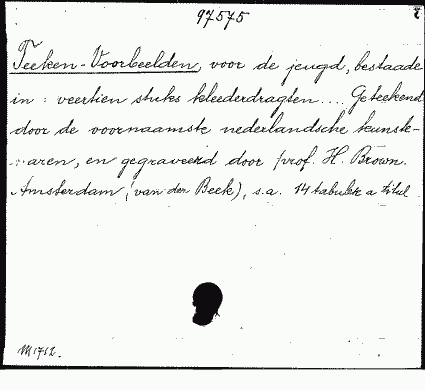 97575
Teeken-Voorbeelden, voor de jeugd, bestaade
in: veertien stuks kleederdragten.... Geteekend
door de voornaamste nederlandsche kunste-
naren, en gegraveerd door prof. H. Brown.
Amsterdam, (van der Beek), s.a. 14 tabulae a titul
M 1712.